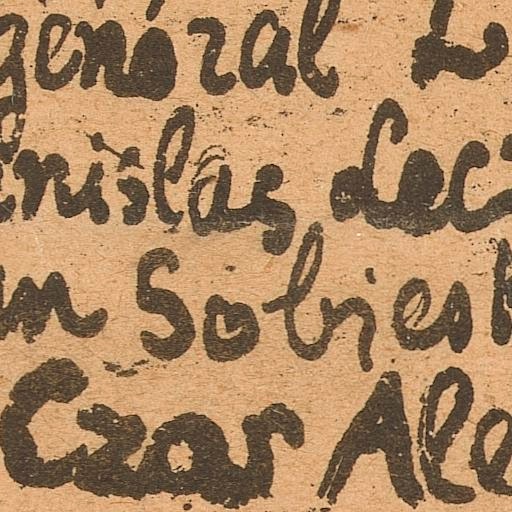 général L
nislas Lecz
an Sobiesk
Czar Ale